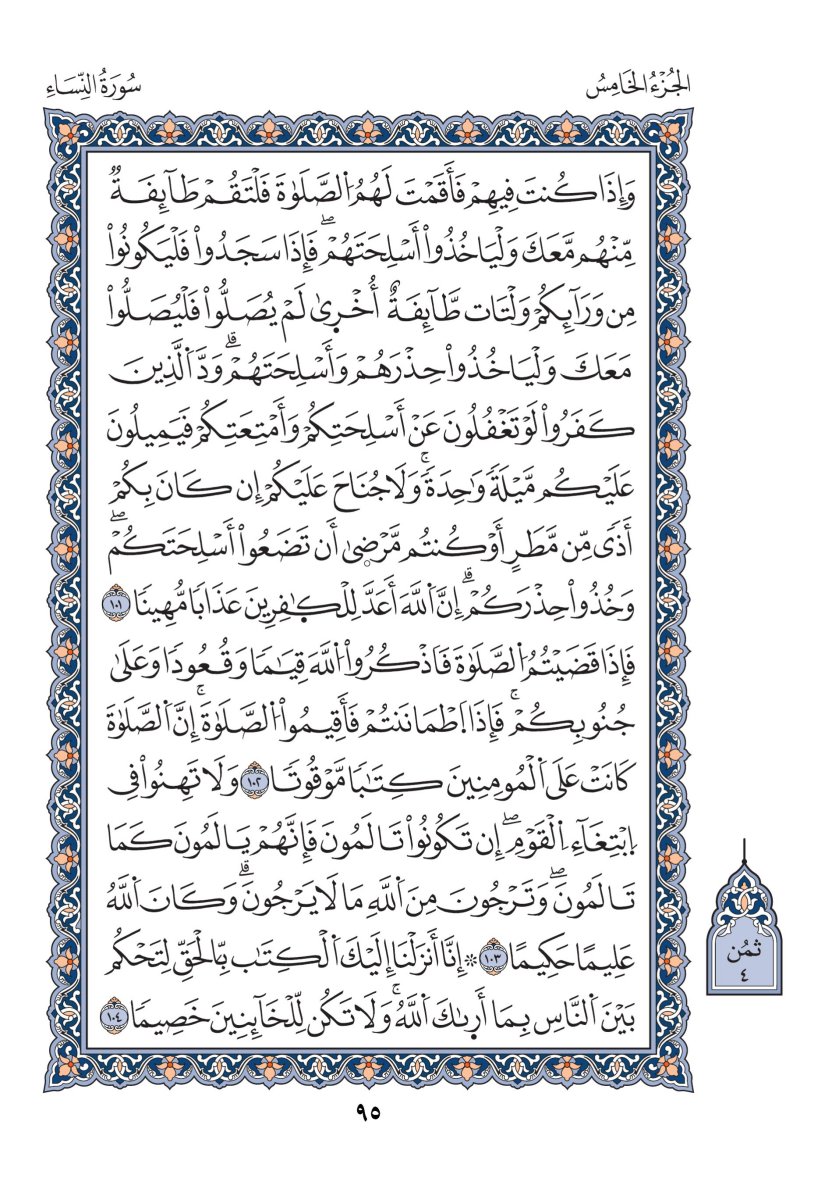 الجُزْءُ الخَامِسُ
سُورَةُ النِّسَاءِ
وَإِذَا كُنتَ فِيهِمْ فَأَقَمْتَ لَهُمُ اُ۬لصَّلَوٰةَ فَلْتَقُمْ طَآئِفَةٌ
مِّنْهُم مَّعَكَ وَلْيَاخُذُوٓاْ أَسْلِحَتَهُمْۖ فَإِذَا سَجَدُواْ فَلْيَكُونُواْ
مِن وَرَآئِكُمْ وَلْتَات طَّآئِفَةٌ أُخْر۪ىٰ لَمْ يُصَلُّواْ فَلْيُصَلُّواْ
مَعَكَ وَلْيَاخُذُواْ حِذْرَهُمْ وَأَسْلِحَتَهُمْۗ وَدَّ اَ۬لَّذِينَ
كَفَرُواْ لَوْ تَغْفُلُونَ عَنْ أَسْلِحَتِكُمْ وَأَمْتِعَتِكُمْ فَيَمِيلُونَ
عَلَيْكُم مَّيْلَةٗ وَٰحِدَةٗۚ وَلَا جُنَاحَ عَلَيْكُمْ إِن كَانَ بِكُمْ
أَذٗى مِّن مَّطَرٍ أَوْ كُنتُم مَّرْض۪ىٰٓ أَن تَضَعُوٓاْ أَسْلِحَتَكُمْۖ
وَخُذُواْ حِذْرَكُمْۗ إِنَّ اَ۬للَّهَ أَعَدَّ لِلْكٰ۪فِرِينَ عَذَابٗا مُّهِينٗا ١٠١
فَإِذَا قَضَيْتُمُ اُ۬لصَّلَوٰةَ فَاذْكُرُواْ اُ۬للَّهَ قِيَٰمٗا وَقُعُودٗا وَعَلَىٰ
جُنُوبِكُمْۚ فَإِذَا اَ۪طْمَانَنتُمْ فَأَقِيمُواْ اُ۬لصَّلَوٰةَۚ إِنَّ اَ۬لصَّلَوٰةَ
كَانَتْ عَلَى اَ۬لْمُومِنِينَ كِتَٰبٗا مَّوْقُوتٗا ١٠٢ وَلَا تَهِنُواْ فِي
اِ۪بْتِغَآءِ اِ۬لْقَوْمِۖ إِن تَكُونُواْ تَالَمُونَ فَإِنَّهُمْ يَالَمُونَ كَمَا
تَالَمُونَۖ وَتَرْجُونَ مِنَ اَ۬للَّهِ مَا لَا يَرْجُونَۗ وَكَانَ اَ۬للَّهُ
عَلِيمًا حَكِيمًا ١٠٣ ۞ إِنَّآ أَنزَلْنَآ إِلَيْكَ اَ۬لْكِتَٰب بِّالْحَقِّ لِتَحْكُم
بَيْنَ اَ۬لنَّاسِ بِمَآ أَر۪ىٰكَ اَ۬للَّهُۚ وَلَا تَكُن لِّلْخَآئِنِينَ خَصِيمٗا ١٠٤
ثمُن
٤
٩٥